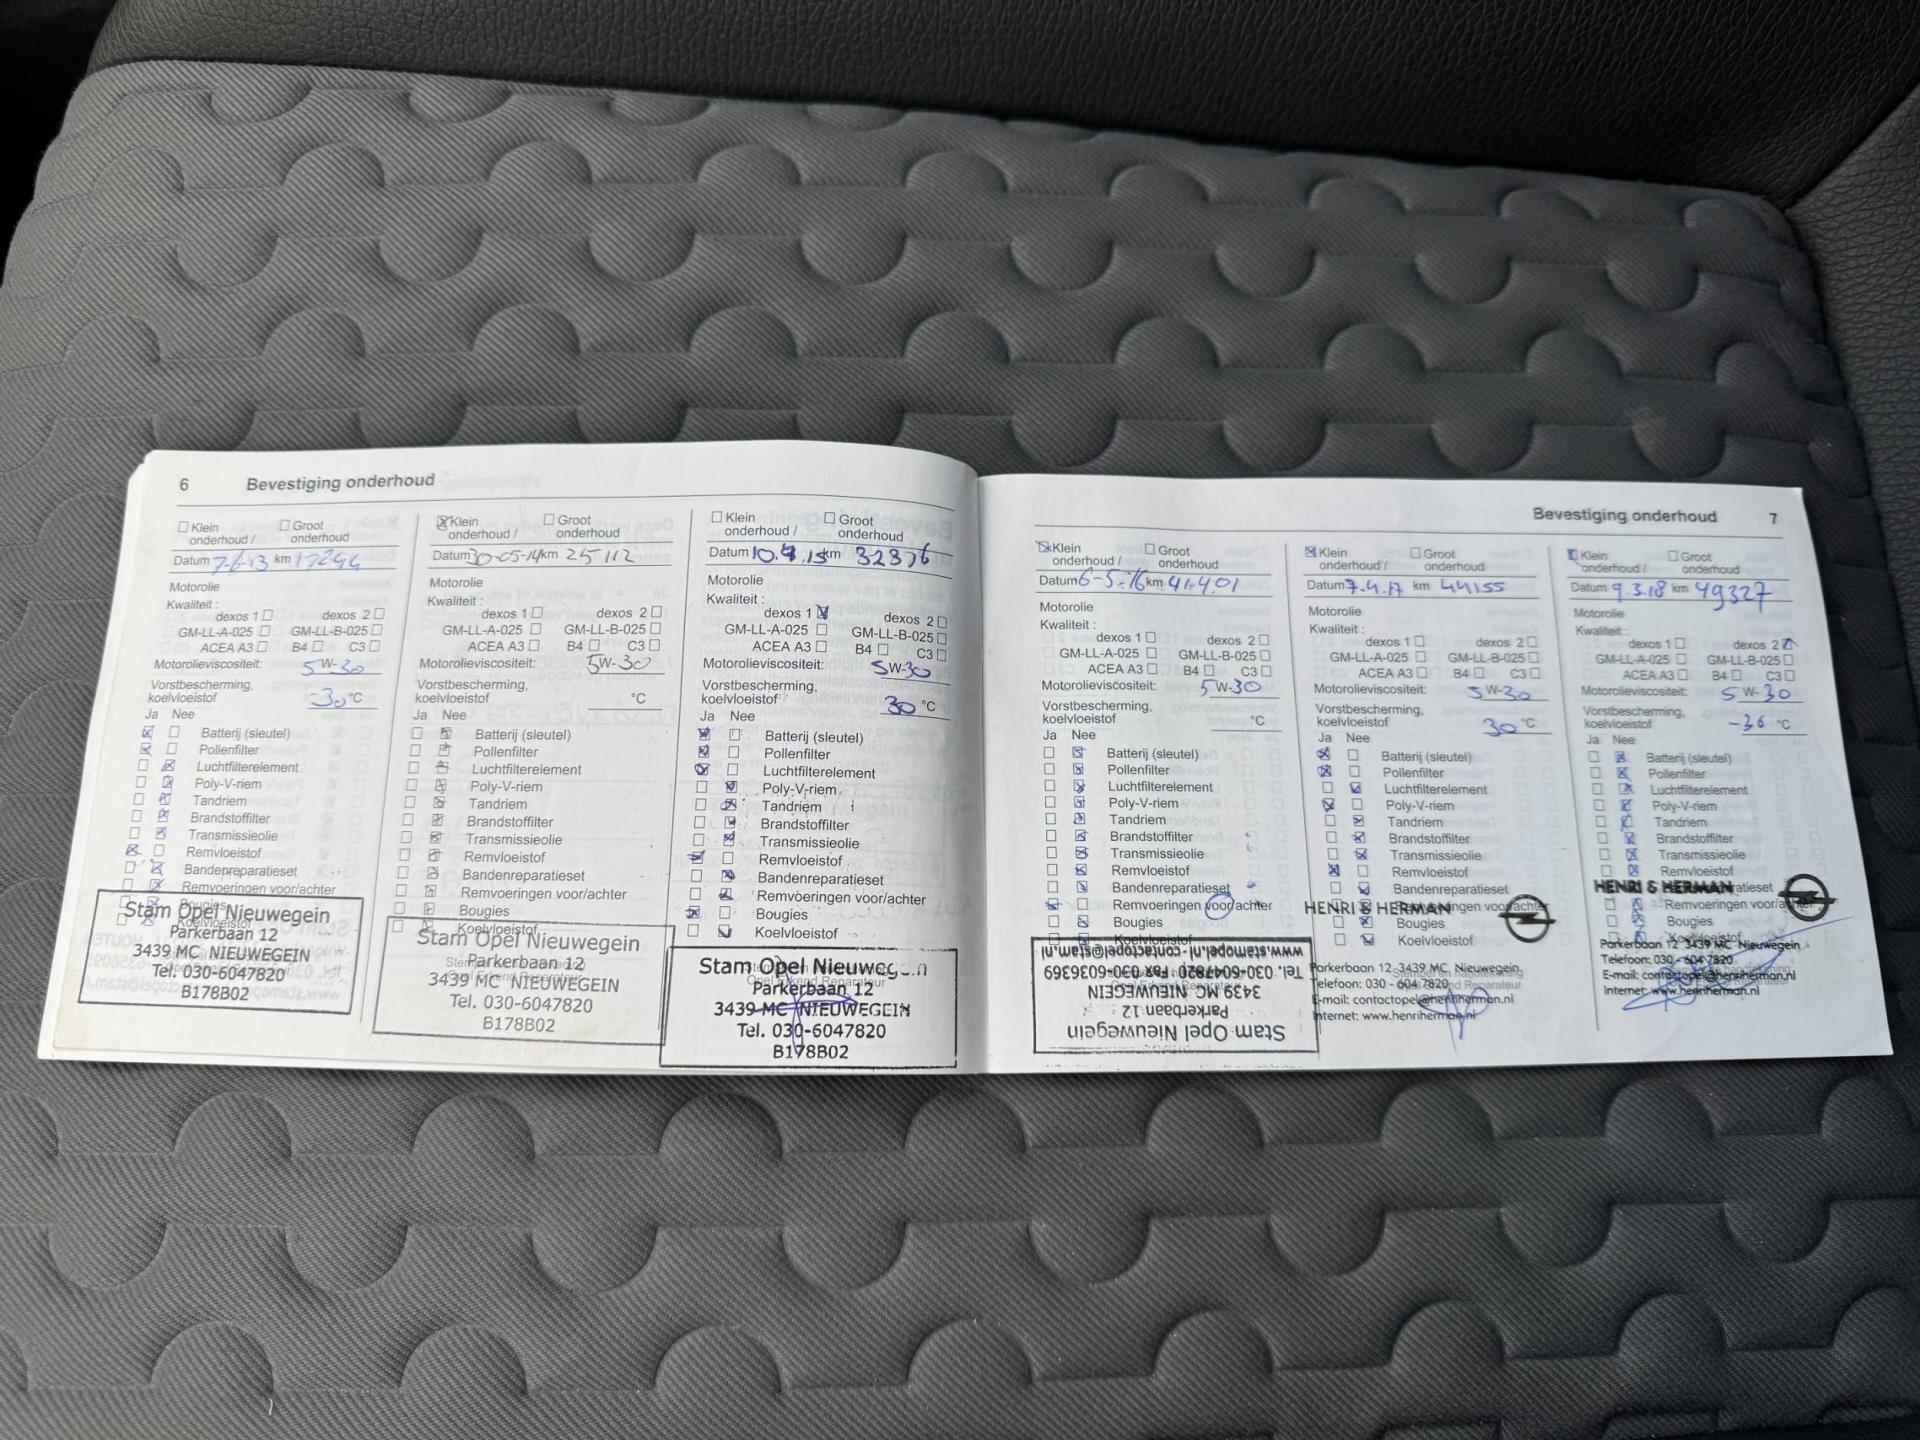 6 Bevestiging onderhoud
Klein onderhoud / Groot onderhoud
Datum 7-6-13 km
Motorolie
Kwaliteit :
dexos 1 dexos 2
GM-LL-A-025 GM-LL-B-025
ACEA A3 B4 C3
Motorolieviscositeit: 5W-30
Vorstbescherming,
koelvloeistof -30 °C
Ja Nee
Batterij (sleutel)
Pollenfilter
Luchtfilterelement
Poly-V-riem
Tandriem
Brandstoffilter
Transmissieolie
Remvloeistof
Bandenreparatieset
Remvoeringen voor/achter
Bougies
Koelvloeistof
Stam Opel Nieuwegein
Parkerbaan 12
3439 MC NIEUWEGEIN
Tel. 030-6047820
B178B02
Klein onderhoud / Groot onderhoud
Datum 30-05-14 km 25112
Motorolie
Kwaliteit :
dexos 1 dexos 2
GM-LL-A-025 GM-LL-B-025
ACEA A3 B4 C3
Motorolieviscositeit: 5W-30
Vorstbescherming,
koelvloeistof °C
Ja Nee
Batterij (sleutel)
Pollenfilter
Luchtfilterelement
Poly-V-riem
Tandriem
Brandstoffilter
Transmissieolie
Remvloeistof
Bandenreparatieset
Remvoeringen voor/achter
Bougies
Koelvloeistof
Stam Opel Nieuwegein
Parkerbaan 12
3439 MC NIEUWEGEIN
Tel. 030-6047820
B178B02
Klein onderhoud / Groot onderhoud
Datum 10.4.15 km 32376
Motorolie
Kwaliteit :
dexos 1 dexos 2
GM-LL-A-025 GM-LL-B-025
ACEA A3 B4 C3
Motorolieviscositeit: 5W-30
Vorstbescherming,
koelvloeistof 30 °C
Ja Nee
Batterij (sleutel)
Pollenfilter
Luchtfilterelement
Poly-V-riem
Tandriem
Brandstoffilter
Transmissieolie
Remvloeistof
Bandenreparatieset
Remvoeringen voor/achter
Bougies
Koelvloeistof
Stam Opel Nieuwegein
Parkerbaan 12
3439 MC NIEUWEGEIN
Tel. 030-6047820
B178B02
Bevestiging onderhoud 7
Klein onderhoud / Groot onderhoud
Datum 6-5-16 km 41.401
Motorolie
Kwaliteit :
dexos 1 dexos 2
GM-LL-A-025 GM-LL-B-025
ACEA A3 B4 C3
Motorolieviscositeit: 5W-30
Vorstbescherming,
koelvloeistof °C
Ja Nee
Batterij (sleutel)
Pollenfilter
Luchtfilterelement
Poly-V-riem
Tandriem
Brandstoffilter
Transmissieolie
Remvloeistof
Bandenreparatieset
Remvoeringen voor/achter
Bougies
Koelvloeistof
Stam Opel Nieuwegein
Parkerbaan 12
3439 MC NIEUWEGEIN
Tel. 030-6047820 Fax 030-6036369
www.stamopel.nl - contactopel@stam.nl
Klein onderhoud / Groot onderhoud
Datum 7.4.17 km 44155
Motorolie
Kwaliteit :
dexos 1 dexos 2
GM-LL-A-025 GM-LL-B-025
ACEA A3 B4 C3
Motorolieviscositeit: 5W-30
Vorstbescherming,
koelvloeistof 30 °C
Ja Nee
Batterij (sleutel)
Pollenfilter
Luchtfilterelement
Poly-V-riem
Tandriem
Brandstoffilter
Transmissieolie
Remvloeistof
Bandenreparatieset
Remvoeringen voor/achter
Bougies
Koelvloeistof
HENRI & HERMAN
Parkerbaan 12 3439 MC Nieuwegein
Telefoon: 030 - 604 7820
E-mail: contactopel@henriherman.nl
Internet: www.henriherman.nl
Klein onderhoud / Groot onderhoud
Datum 9.3.18 km 49327
Motorolie
Kwaliteit :
dexos 1 dexos 2
GM-LL-A-025 GM-LL-B-025
ACEA A3 B4 C3
Motorolieviscositeit: 5W-30
Vorstbescherming,
koelvloeistof -36 °C
Ja Nee
Batterij (sleutel)
Pollenfilter
Luchtfilterelement
Poly-V-riem
Tandriem
Brandstoffilter
Transmissieolie
Remvloeistof
Bandenreparatieset
Remvoeringen voor/achter
Bougies
Koelvloeistof
HENRI & HERMAN
Parkerbaan 12 3439 MC Nieuwegein
Telefoon: 030 - 604 7820
E-mail: contactopel@henriherman.nl
Internet: www.henriherman.nl